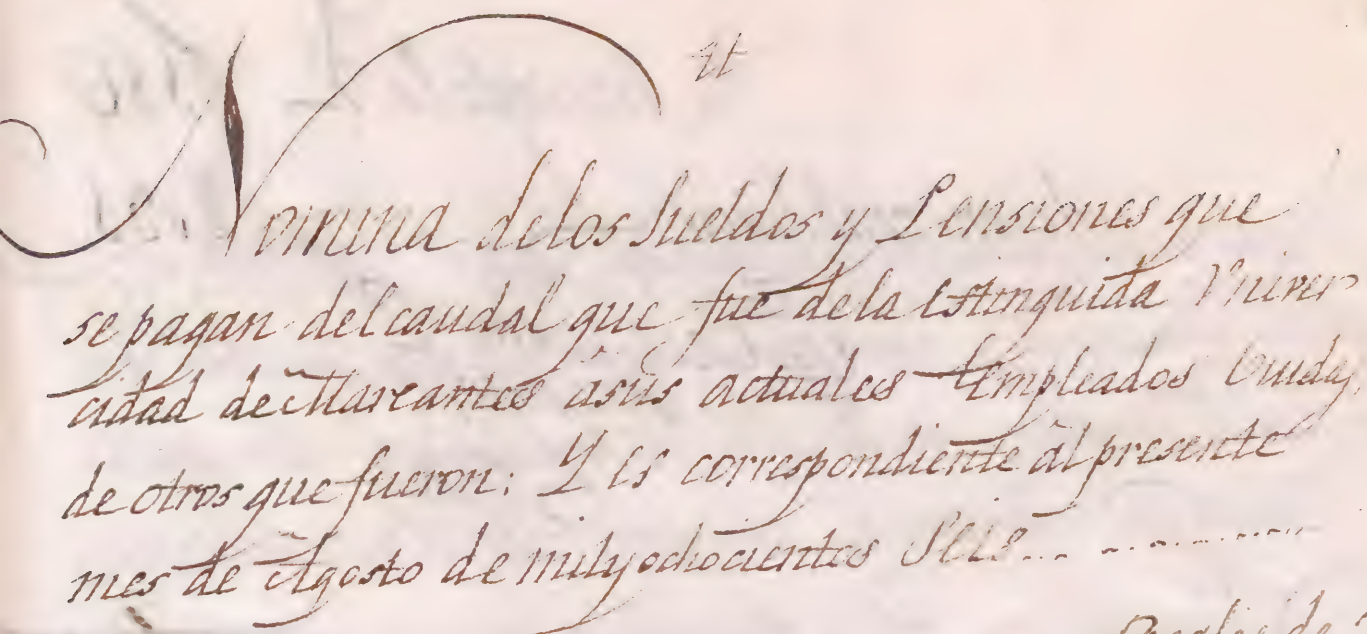 Nomina delos Sueldos y Pensiones que
se pagan del caudal que fue dela Estinguida Univer
cidad de Mareantes ásus actuales Empleados Viudas
de otros que fueron: Y es correspondiente ál presente
mes de Agosto de mil y ochocientos Seis
Reales de